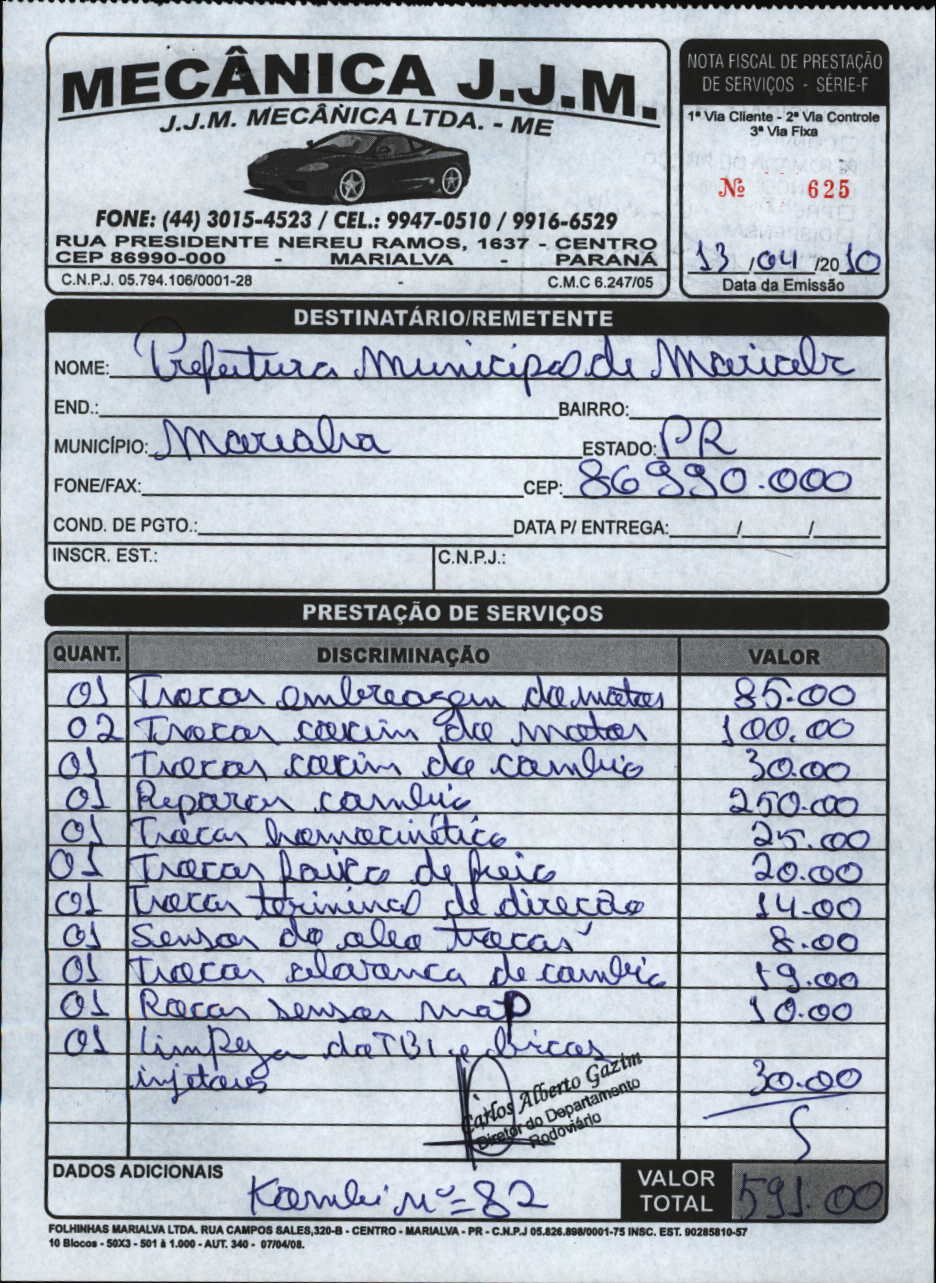 MECÂNICA J.J.M.
J.J.M. MECÂNICA LTDA. - ME
FONE: (44) 3015-4523 / CEL.: 9947-0510 / 9916-6529
RUA PRESIDENTE NEREU RAMOS, 1637 - CENTRO
CEP 86990-000 - MARIALVA - PARANÁ
C.N.P.J. 05.794.106/0001-28 - C.M.C 6.247/05
NOTA FISCAL DE PRESTAÇÃO
DE SERVIÇOS - SÉRIE-F
1ª Via Cliente - 2ª Via Controle
3ª Via Fixa
Nº 625
13 /04 /2010
Data da Emissão
DESTINATÁRIO/REMETENTE
NOME: Prefeitura Municipal de Marialv
END.: BAIRRO:
MUNICÍPIO: Marialva ESTADO: PR
FONE/FAX: CEP: 86990.000
COND. DE PGTO.: DATA P/ ENTREGA: / /
INSCR. EST.: C.N.P.J.:
PRESTAÇÃO DE SERVIÇOS
QUANT. DISCRIMINAÇÃO VALOR
01 Trocar embreagem do motor 85.00
02 Trocar coxim do motor 100.00
01 Trocar coxim do cambio 30.00
01 Reparar cambio 250.00
01 Trocar homocinético 25.00
01 Trocar de freio 20.00
01 Trocar terminal de direção 14.00
01 Sensor do oleo trocar 8.00
01 Trocar alavanca de cambio 19.00
01 Rocar sensor map 10.00
01 Limpeza do TBI e bicos
injetores 30.00
Carlos Alberto Gazim
Diretor do Departamento
Rodoviário
DADOS ADICIONAIS
Kombi nº= 82
VALOR
TOTAL 591.00
FOLHINHAS MARIALVA LTDA. RUA CAMPOS SALES,320-B - CENTRO - MARIALVA - PR - C.N.P.J 05.826.898/0001-75 INSC. EST. 90285810-57
10 Blocos - 50X3 - 501 à 1.000 - AUT. 340 - 07/04/08.